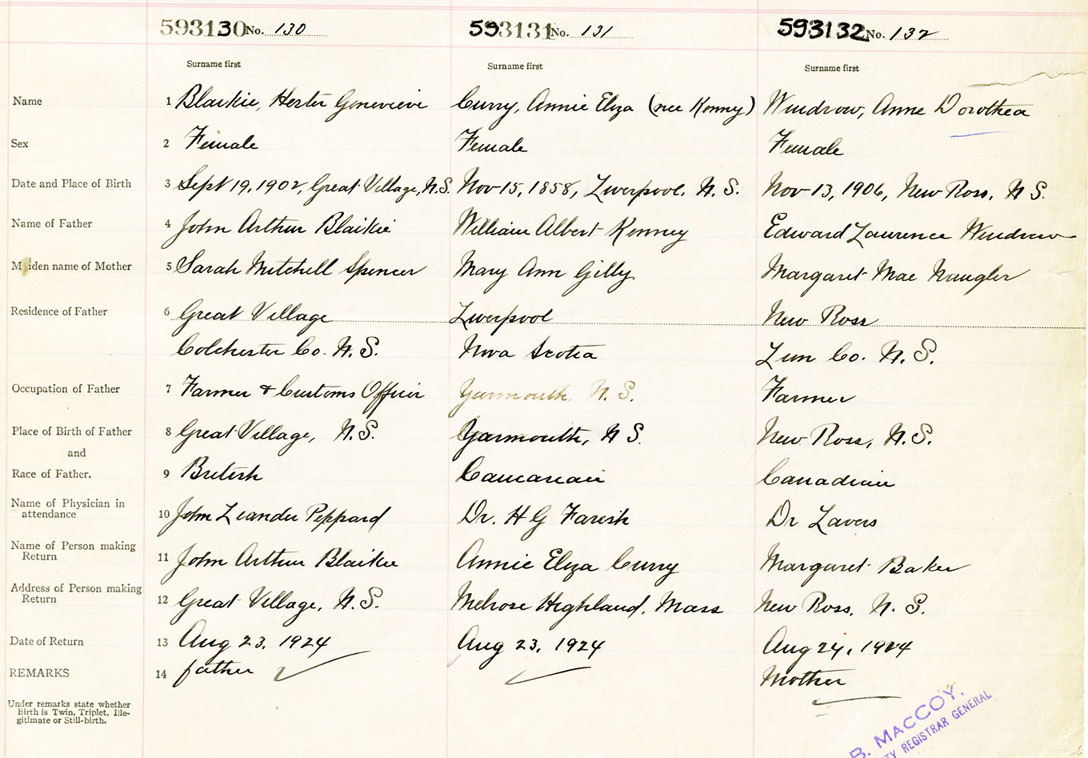 593130 No. 130 593131 No. 131 593132 No. 132
Surname first Surname first Surname first
Name 1 Blaikie, Hester Genevieve Curry, Annie Eliza (nee Kenney) Windrow, Anne Dorothea
Sex 2 Female Female Female
Date and Place of Birth 3 Sept 19, 1902, Great Village, N.S. Nov 15, 1858, Liverpool, N.S. Nov 13, 1906, New Ross, N S.
Name of Father 4 John Arthur Blaikie William Albert Kenney Edward Laurence Windrow
Maiden name of Mother 5 Sarah Mitchell Spencer Mary Ann Gilly Margaret Mae Naugler
Residence of Father 6 Great Village Liverpool New Ross
Colchester Co. N.S. Nova Scotia Lun Co. N.S.
Occupation of Father 7 Farmer & Customs Officer Yarmouth N.S. Farmer
Place of Birth of Father 8 Great Village, N.S. Yarmouth, N S. New Ross, N.S.
and
Race of Father. 9 British Caucasian Canadian
Name of Physician in
attendance 10 John Leander Peppard Dr. H G Farish Dr Lavers
Name of Person making
Return 11 John Arthur Blaikie Annie Eliza Curry Margaret Baker
Address of Person making
Return 12 Great Village, N.S. Melrose Highland, Mass New Ross, N.S.
Date of Return 13 Aug 23, 1924 Aug 23, 1924 Aug 24, 1924
REMARKS 14 father Mother
Under remarks state whether
Birth is Twin, Triplet, Ille-
gitimate or Still-birth.
B. MACCOY.
TY REGISTRAR GENERAL